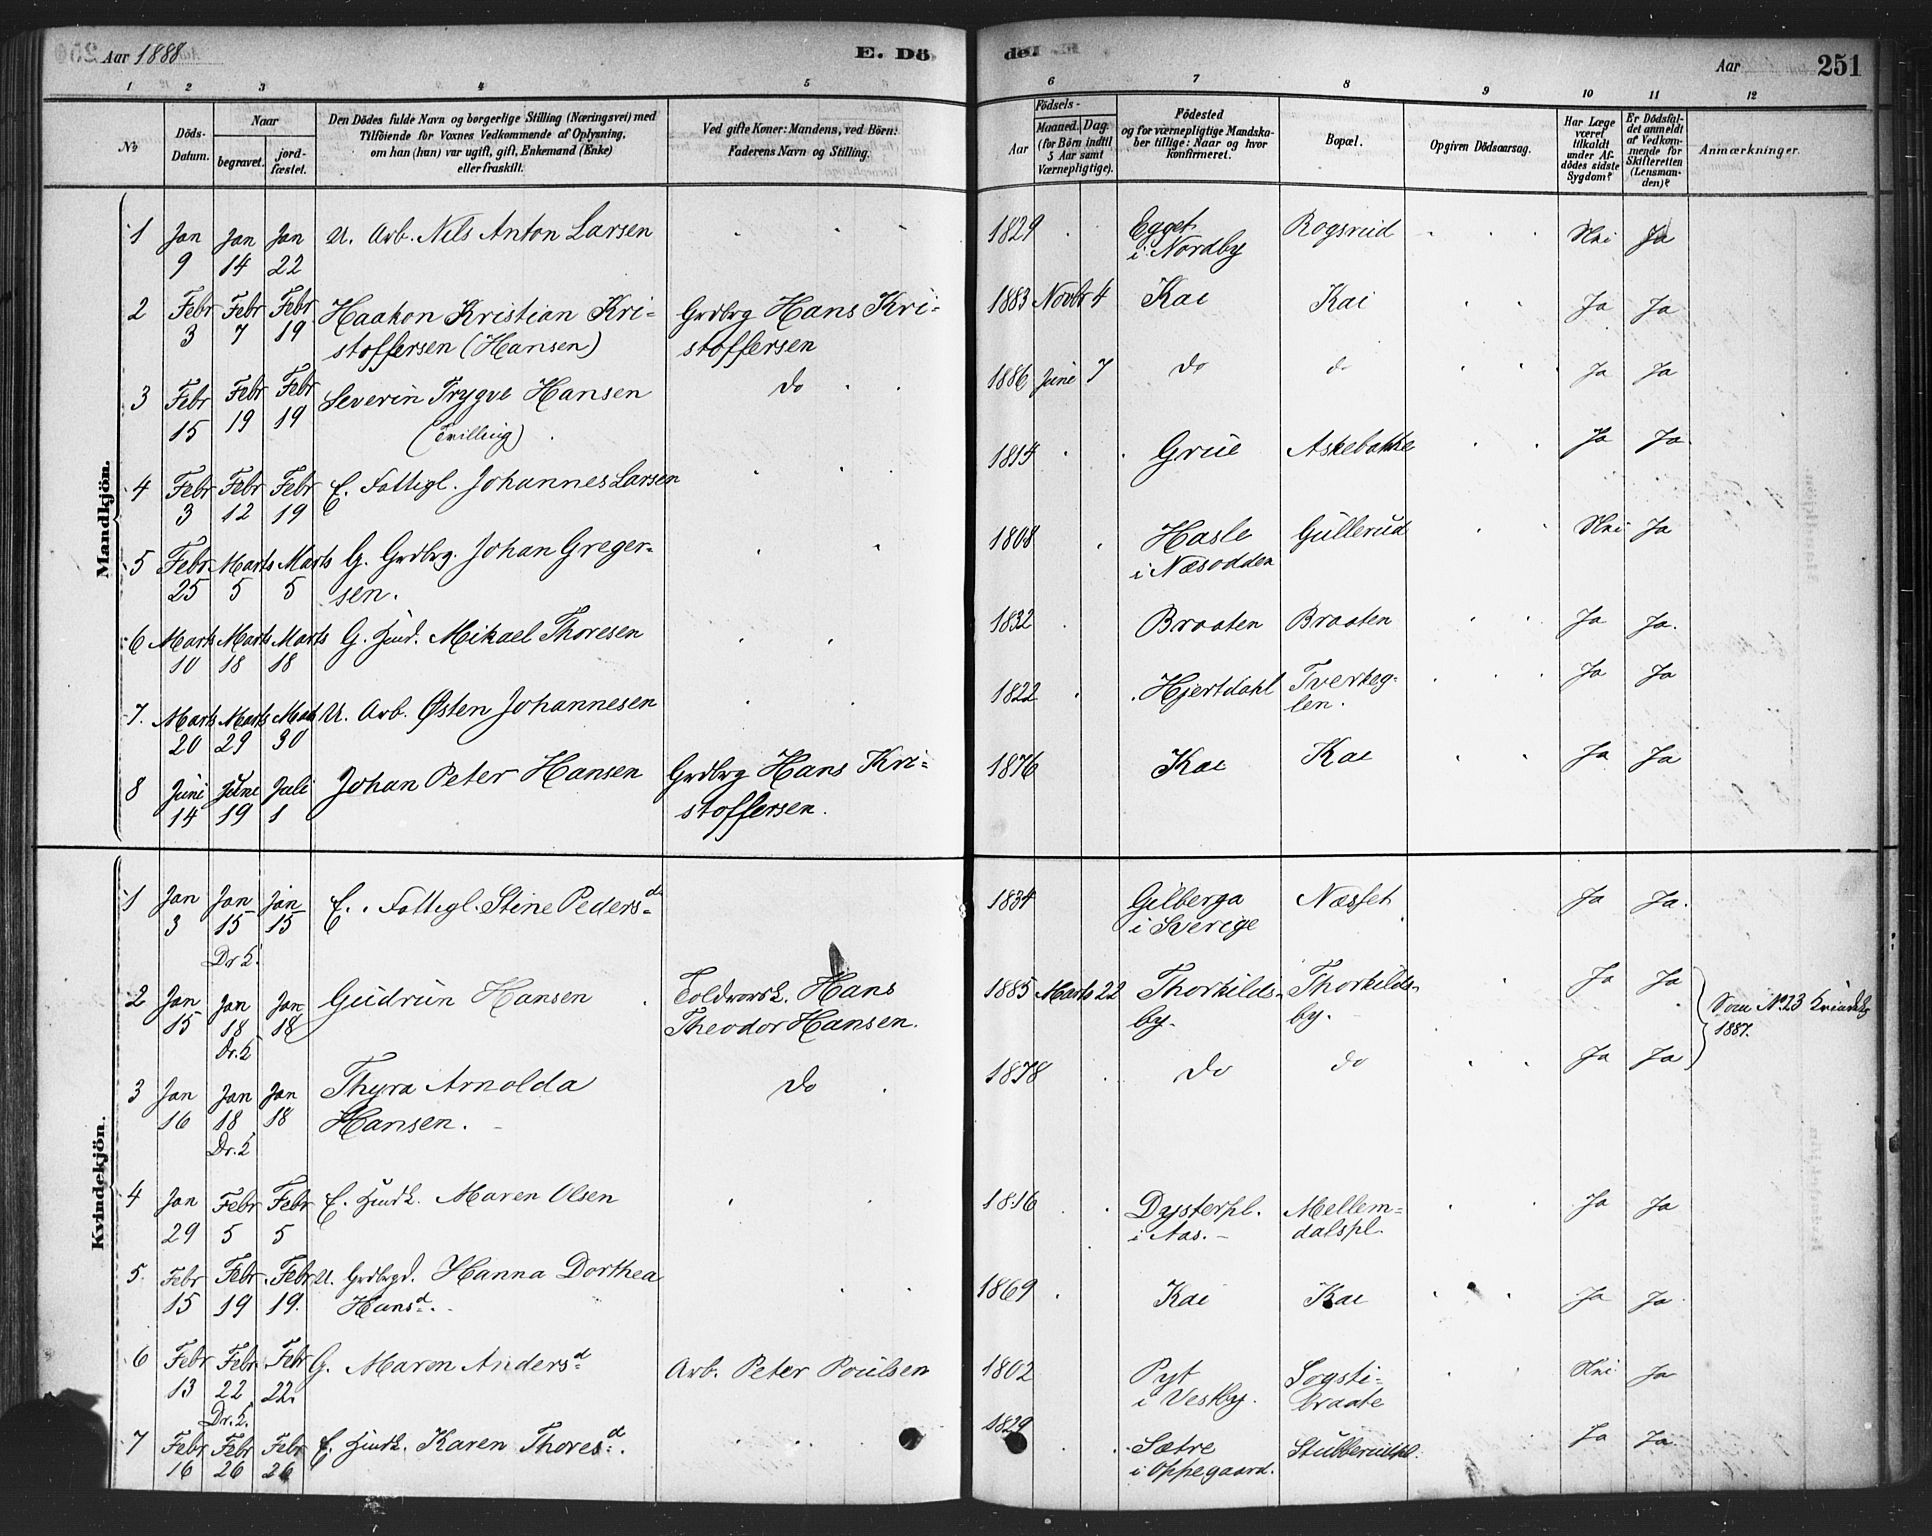 Aar 1888 E. Dö- de. Aar 251
1 2 3 4 5 6 7 8 9 10 11 12
No Döds-Datum. Naar begravet. jord-fæstet.
Den Dödes fulde Navn og borgerlige Stilling (Næringsvei) med
Tilföiende for Voxnes Vedkommende af Oplysning,
om han (hun) var ugift, gift, Enkemand (Enke)
eller fraskilt.
Ved gifte Koner: Mandens, ved Börn:
Faderens Navn og Stilling.
Födsels-
Aar Maaned. Dag.
(for Börn indtil
5 Aar samt
Værnepligtige).
Födested
og for værnepligtige Mandska-
ber tillige: Naar og hvor
konfirmeret.
Bopæl.
Opgiven Dödsaarsag.
Har Læge
været
tilkaldt
under Af-
dödes sidste
Sygdom?
Er Dödsfal-
det anmeldt
af Vedkom-
mende for
Skifteretten
(Lensman-
den)?
Anmærkninger.
Mandkjön.
1 Jan 9 Jan 14 Jan 22 U. Arb. Nils Anton Larsen 1829 Egget i Nordby Rogsrud Nei Ja
2 Febr 3 Febr 7 Febr 19 Haakon Kristian Kri-
stoffersen (Hansen) Grdbrg Hans Kri-
stoffersen 1883 Novbr 4 Kai Kai Ja Ja
3 Febr 15 Febr 19 Febr 19 Severin Trygve Hansen
(Tvilling) Do 1886 Juni 7 do do Ja Ja
4 Febr 3 Febr 12 Febr 19 E. Fattigl. Johannes Larsen 1814 Grue Askebakke Ja Ja
5 Febr 25 Marts 5 Marts 5 G. Grdbrg. Johan Greger-
sen. 1808 Hasle i Næsodden Gullerud Nei Ja
6 Marts 10 Marts 18 Marts 18 G. Husd. Mikael Thoresen 1832 Braaten Braaten Ja Ja.
7. Marts 20 Marts 29 Marts 30 U. Arb. Østen Johannesen 1822 Hjertdahl Tverteg-
len. Ja Ja
8 Juni 14 Juni 19 Juli 1 Johan Peter Hansen Grdbrg Hans Kri-
stoffersen. 1876 Kai Kai Ja Ja
Kvindekjön.
1 Jan 3 Jan 15 Jan 15 E. Fattigl. Stine Pedersd 1834 Gilberga i Sverige Næsset Ja Ja.
Dr.k.
2 Jan 15 Jan 18 Jan 18 Gudrun Hansen Toldrorsk. Hans
Theodor Hansen. 1885 Marts 22 Thorkilds-
by. Thorkilds-
by. Ja Ja Som No 23 Kvindek
1887.
Dr.k
3 Jan 16 Jan 18 Jan 18 Thyra Arnolda
Hansen. Do 1878 do do Ja Ja
Dr.k
4 Jan 29 Febr 5 Febr 5 E. Husk. Maren Olsen 1816 Dysterpl. i Aas. Mellem-
dalspl. Ja Ja
5. Febr 15 Febr 19 Febr 19. U. Grdbrgd. Hanna Dorthea
Hansd. 1869 Kai Kai Ja Ja
6 Febr 13 Febr. 22 Febr 22. G. Maren Andersd Arb. Peter Poulsen 1802 Pyt i Vestby. Sogsti-
braate Nei Ja
Dr.k.
7 Febr 16 Febr 26 Febr 26 E. Husk. Karen Thoresd. 1829 Sætre i Oppegaard. Stubberudpl. Ja Ja